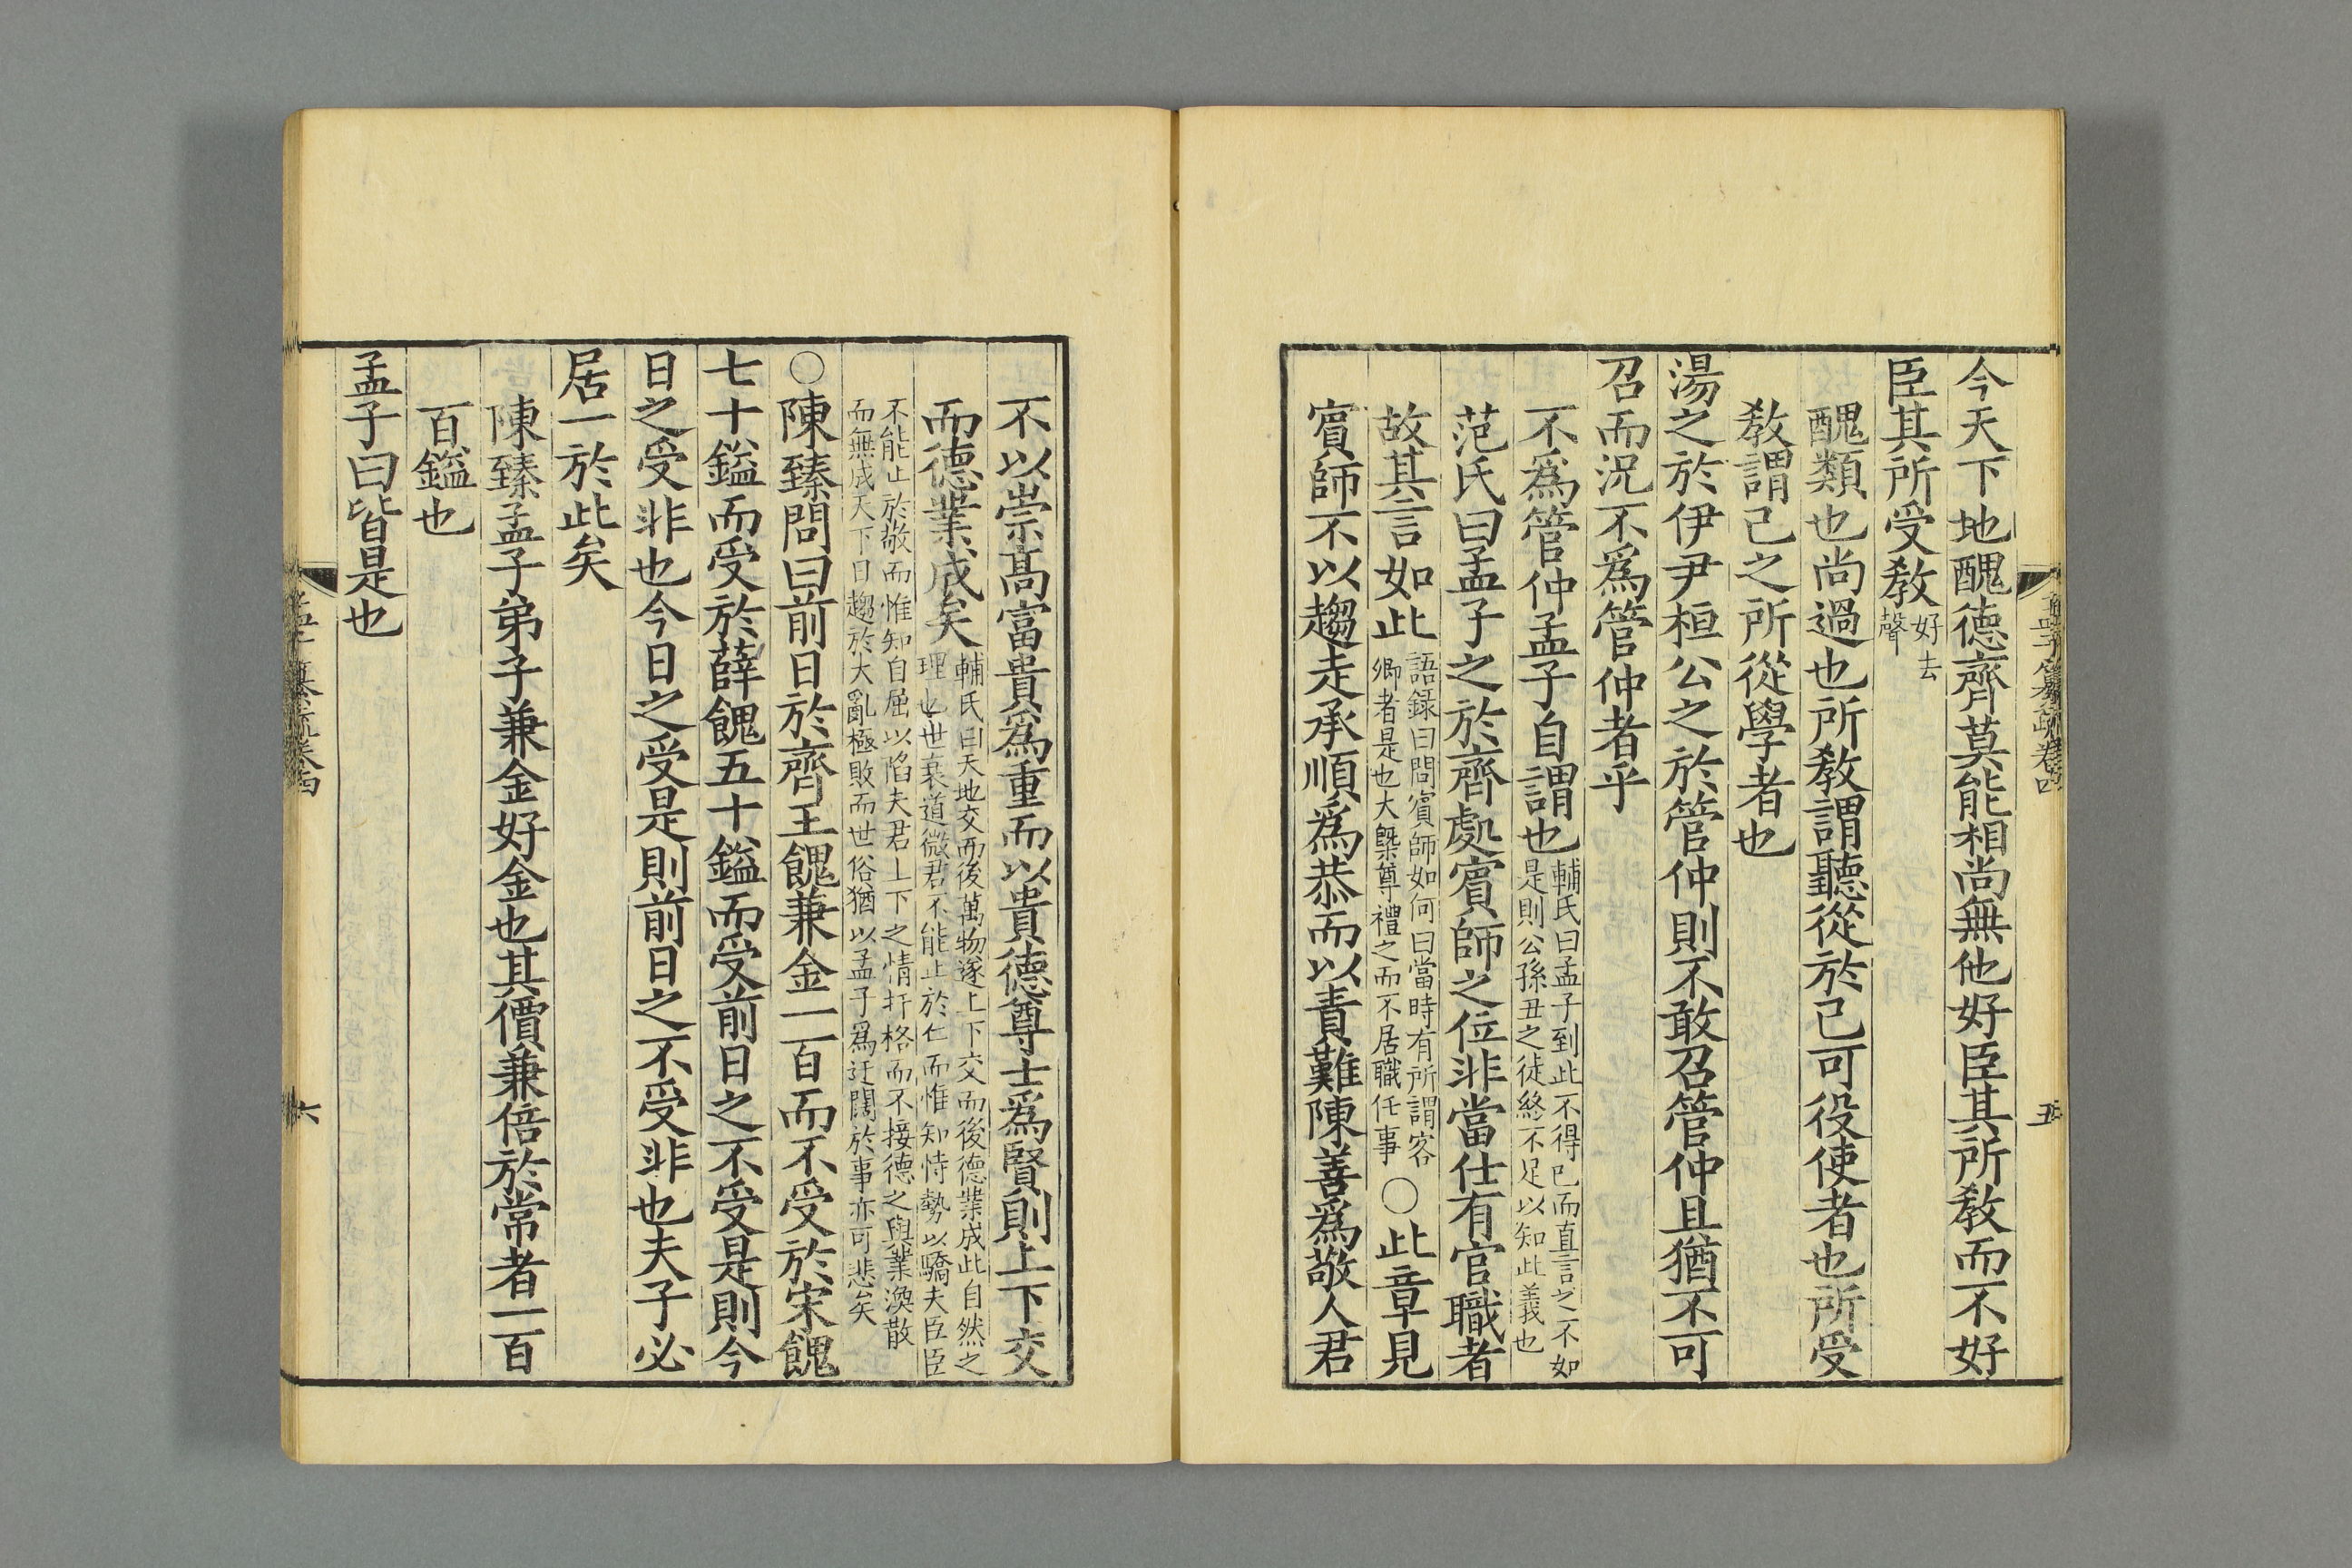 孟子纂疏卷四
五
今天下地醜德齊莫能相尚無他好臣其所教而不好
臣其所受教好去
聲
醜類也尚過也所教謂聽從於己可役使者也所受
教謂己之所從學者也
湯之於伊尹桓公之於管仲則不敢召管仲且猶不可
召而況不爲管仲者乎
不爲管仲孟子自謂也輔氏曰孟子到此不得已而直言之不如
是則公孫丑之徒終不足以知此義也
范氏曰孟子之於齊處賓師之位非當仕有官職者
故其言如此語録曰問賓師如何曰當時有所謂客
卿者是也大槩尊禮之而不居職任事〇此章見
賓師不以趨走承順爲恭而以責難陳善爲敬人君
不以崇高富貴爲重而以貴德尊士爲賢則上下交
而德業成矣輔氏曰天地交而後萬物遂上下交而後德業成此自然之
理也世衰道微君不能止於仁而惟知恃勢以驕夫臣臣
不能止於敬而惟知自屈以陷夫君上下之情扞格而不接德之與業渙散
而無成天下日趨於大亂極敗而世俗猶以孟子爲迂闊於事亦可悲矣
〇陳臻問曰前日於齊王餽兼金一百而不受於宋餽
七十鎰而受於薛餽五十鎰而受前日之不受是則今
日之受非也今日之受是則前日之不受非也夫子必
居一於此矣
陳臻孟子弟子兼金好金也其價兼倍於常者一百
百鎰也
孟子曰皆是也
孟子纂疏卷四
六